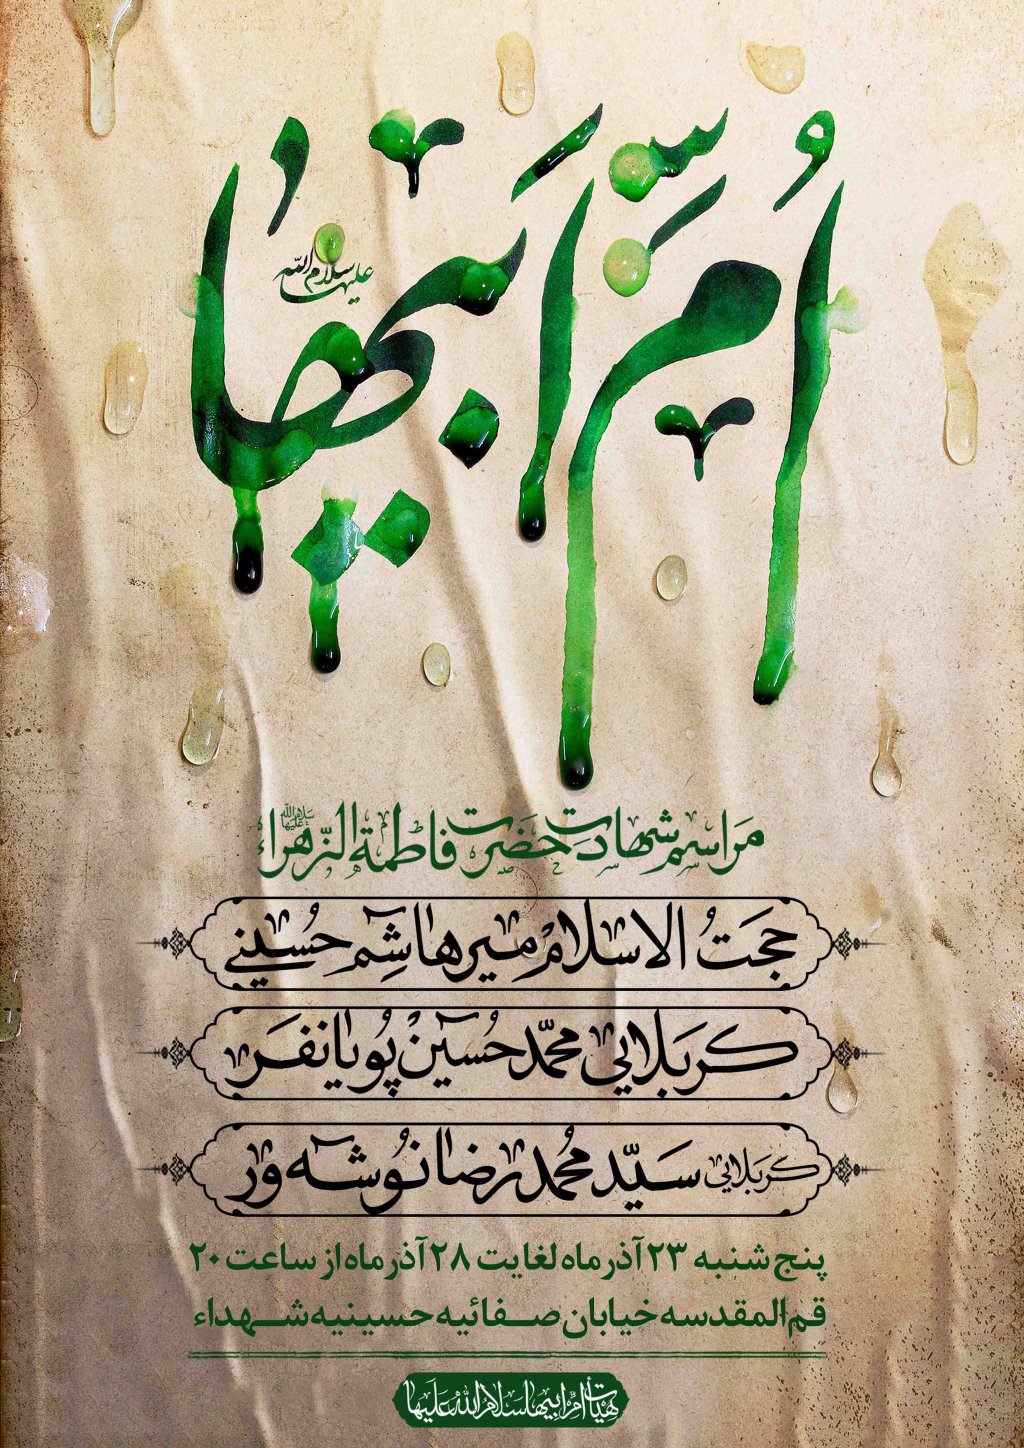 اُمِّ اَبیها
سلام الله علیها
مراسم شهادت حضرت فاطمة الزهراء سلام الله علیها
حجت الاسلام میرهاشم حسینی
کربلایی محمدحسین پویانفر
کربلایی سیدمحمدرضا نوشه ور
پنج شنبه ۲۳ آذر ماه لغایت ۲۸ آذر ماه از ساعت ۲۰
قم المقدسه خیابان صفائیه حسینیه شهداء
هیأت ام ابیها سلام الله علیها